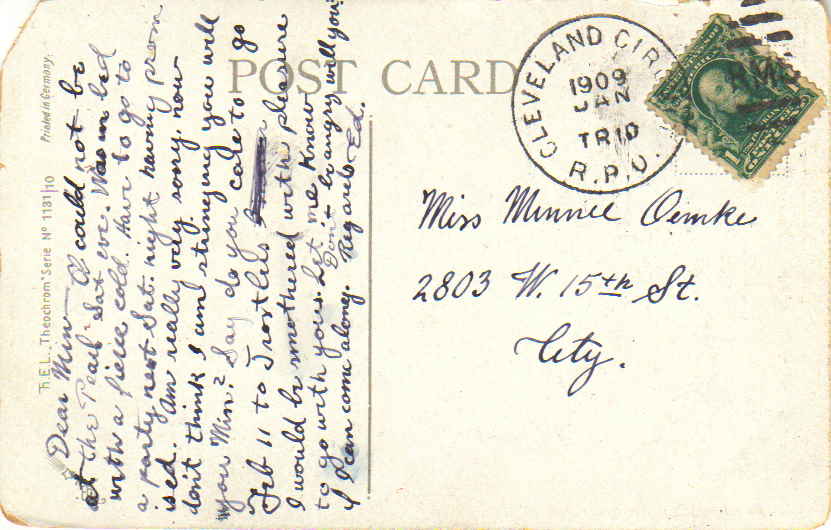 POST CARD
Printed in Germany.
T.E.L. „Theochrom" Serie Nº 1131/10
Dear Min — I could not be
at the Pearl Sat eve. Was in bed
with a fierce cold. Have to go to
a party next Sat. night having prom
ised. Am really very sorry, now
don't think I am stringing you will
you Min? Say do you care to go
Feb 11 to Trostlers
I would be smothered with pleasure
to go with you. Let me know
if I can come along. Regards Ed.
Don't be angry will you?
CLEVELAND CIRC
1909
JAN
TR10
R.P.O.
Miss Minnie Oemke
2803 W. 15th St.
City.